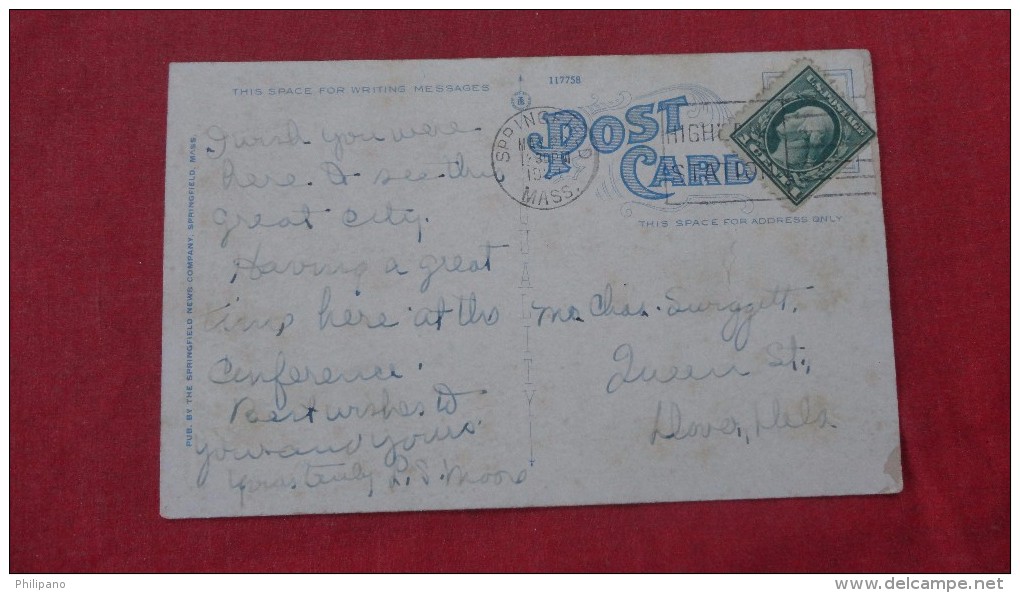 THIS SPACE FOR WRITING MESSAGES
117758
POST CARD
THIS SPACE FOR ADDRESS ONLY
PUB. BY THE SPRINGFIELD NEWS COMPANY, SPRINGFIELD, MASS.
SPRING
MASS.
HIGH
STATION
QUALITY
I wish you were
here to see this
great city.
Having a great
time here at the
Conference.
Best wishes to
you and yours.
Yours truly, R. S. Moore
Mr. Chas. Surggett.
Queen St.,
Dover, Dela
Philipano
www.delcampe.net